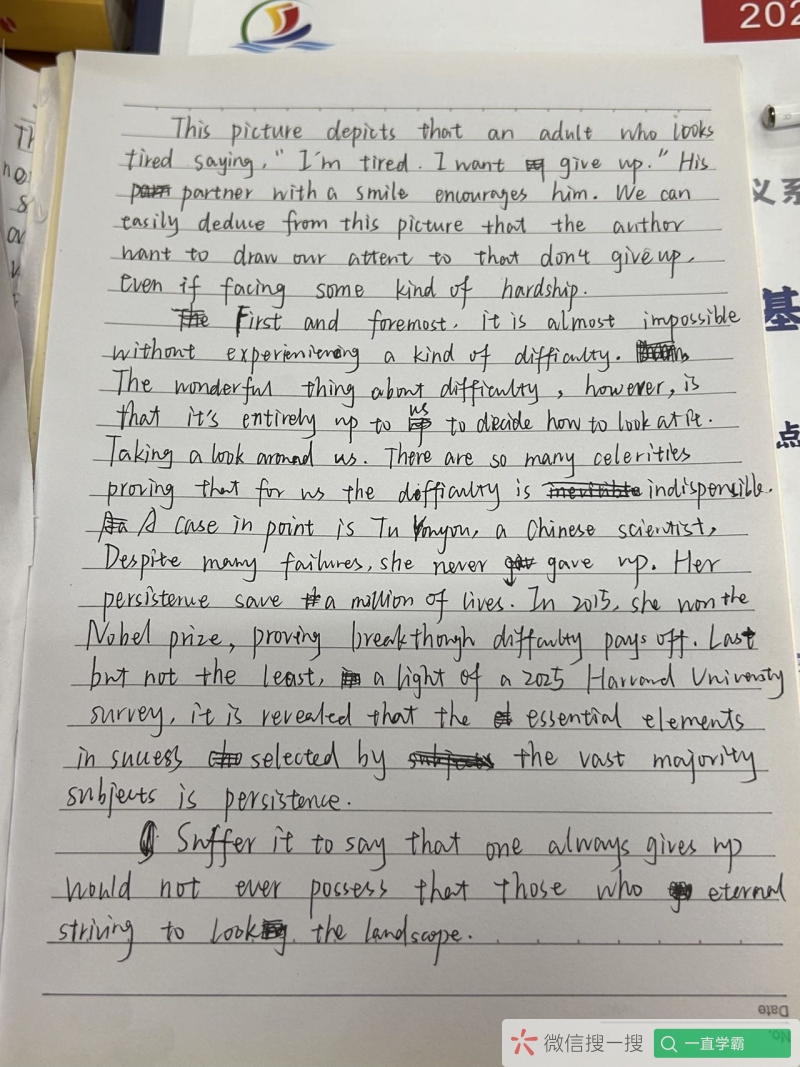 202
This picture depicts that an adult who looks
tired saying, "I'm tired. I want give up." His
partner with a smile encourages him. We can
easily deduce from this picture that the author
want to draw our attent to that don't give up,
even if facing some kind of hardship.
First and foremost, it is almost impossible
without experiening a kind of difficulty.
The wonderful thing about difficulty, however, is
that it's entirely up to us to decide how to look at it.
Taking a look around us. There are so many celerities
proving that for us the difficulty is indispensible.
A case in point is Tu Yonyou, a Chinese scientist,
Despite many failures, she never gave up. Her
persistence save a million of lives. In 2015, she won the
Nobel prize, proving breakthough difficulty pays off. Last
but not the least, a light of a 2025 Harvard University
survey, it is revealed that the essential elements
in success selected by the vast majority
subjects is persistence.
Suffer it to say that one always gives up
would not ever possess that those who eternal
striving to look the landscape.
义系
基
点
Date
No.
微信搜一搜
一直学霸